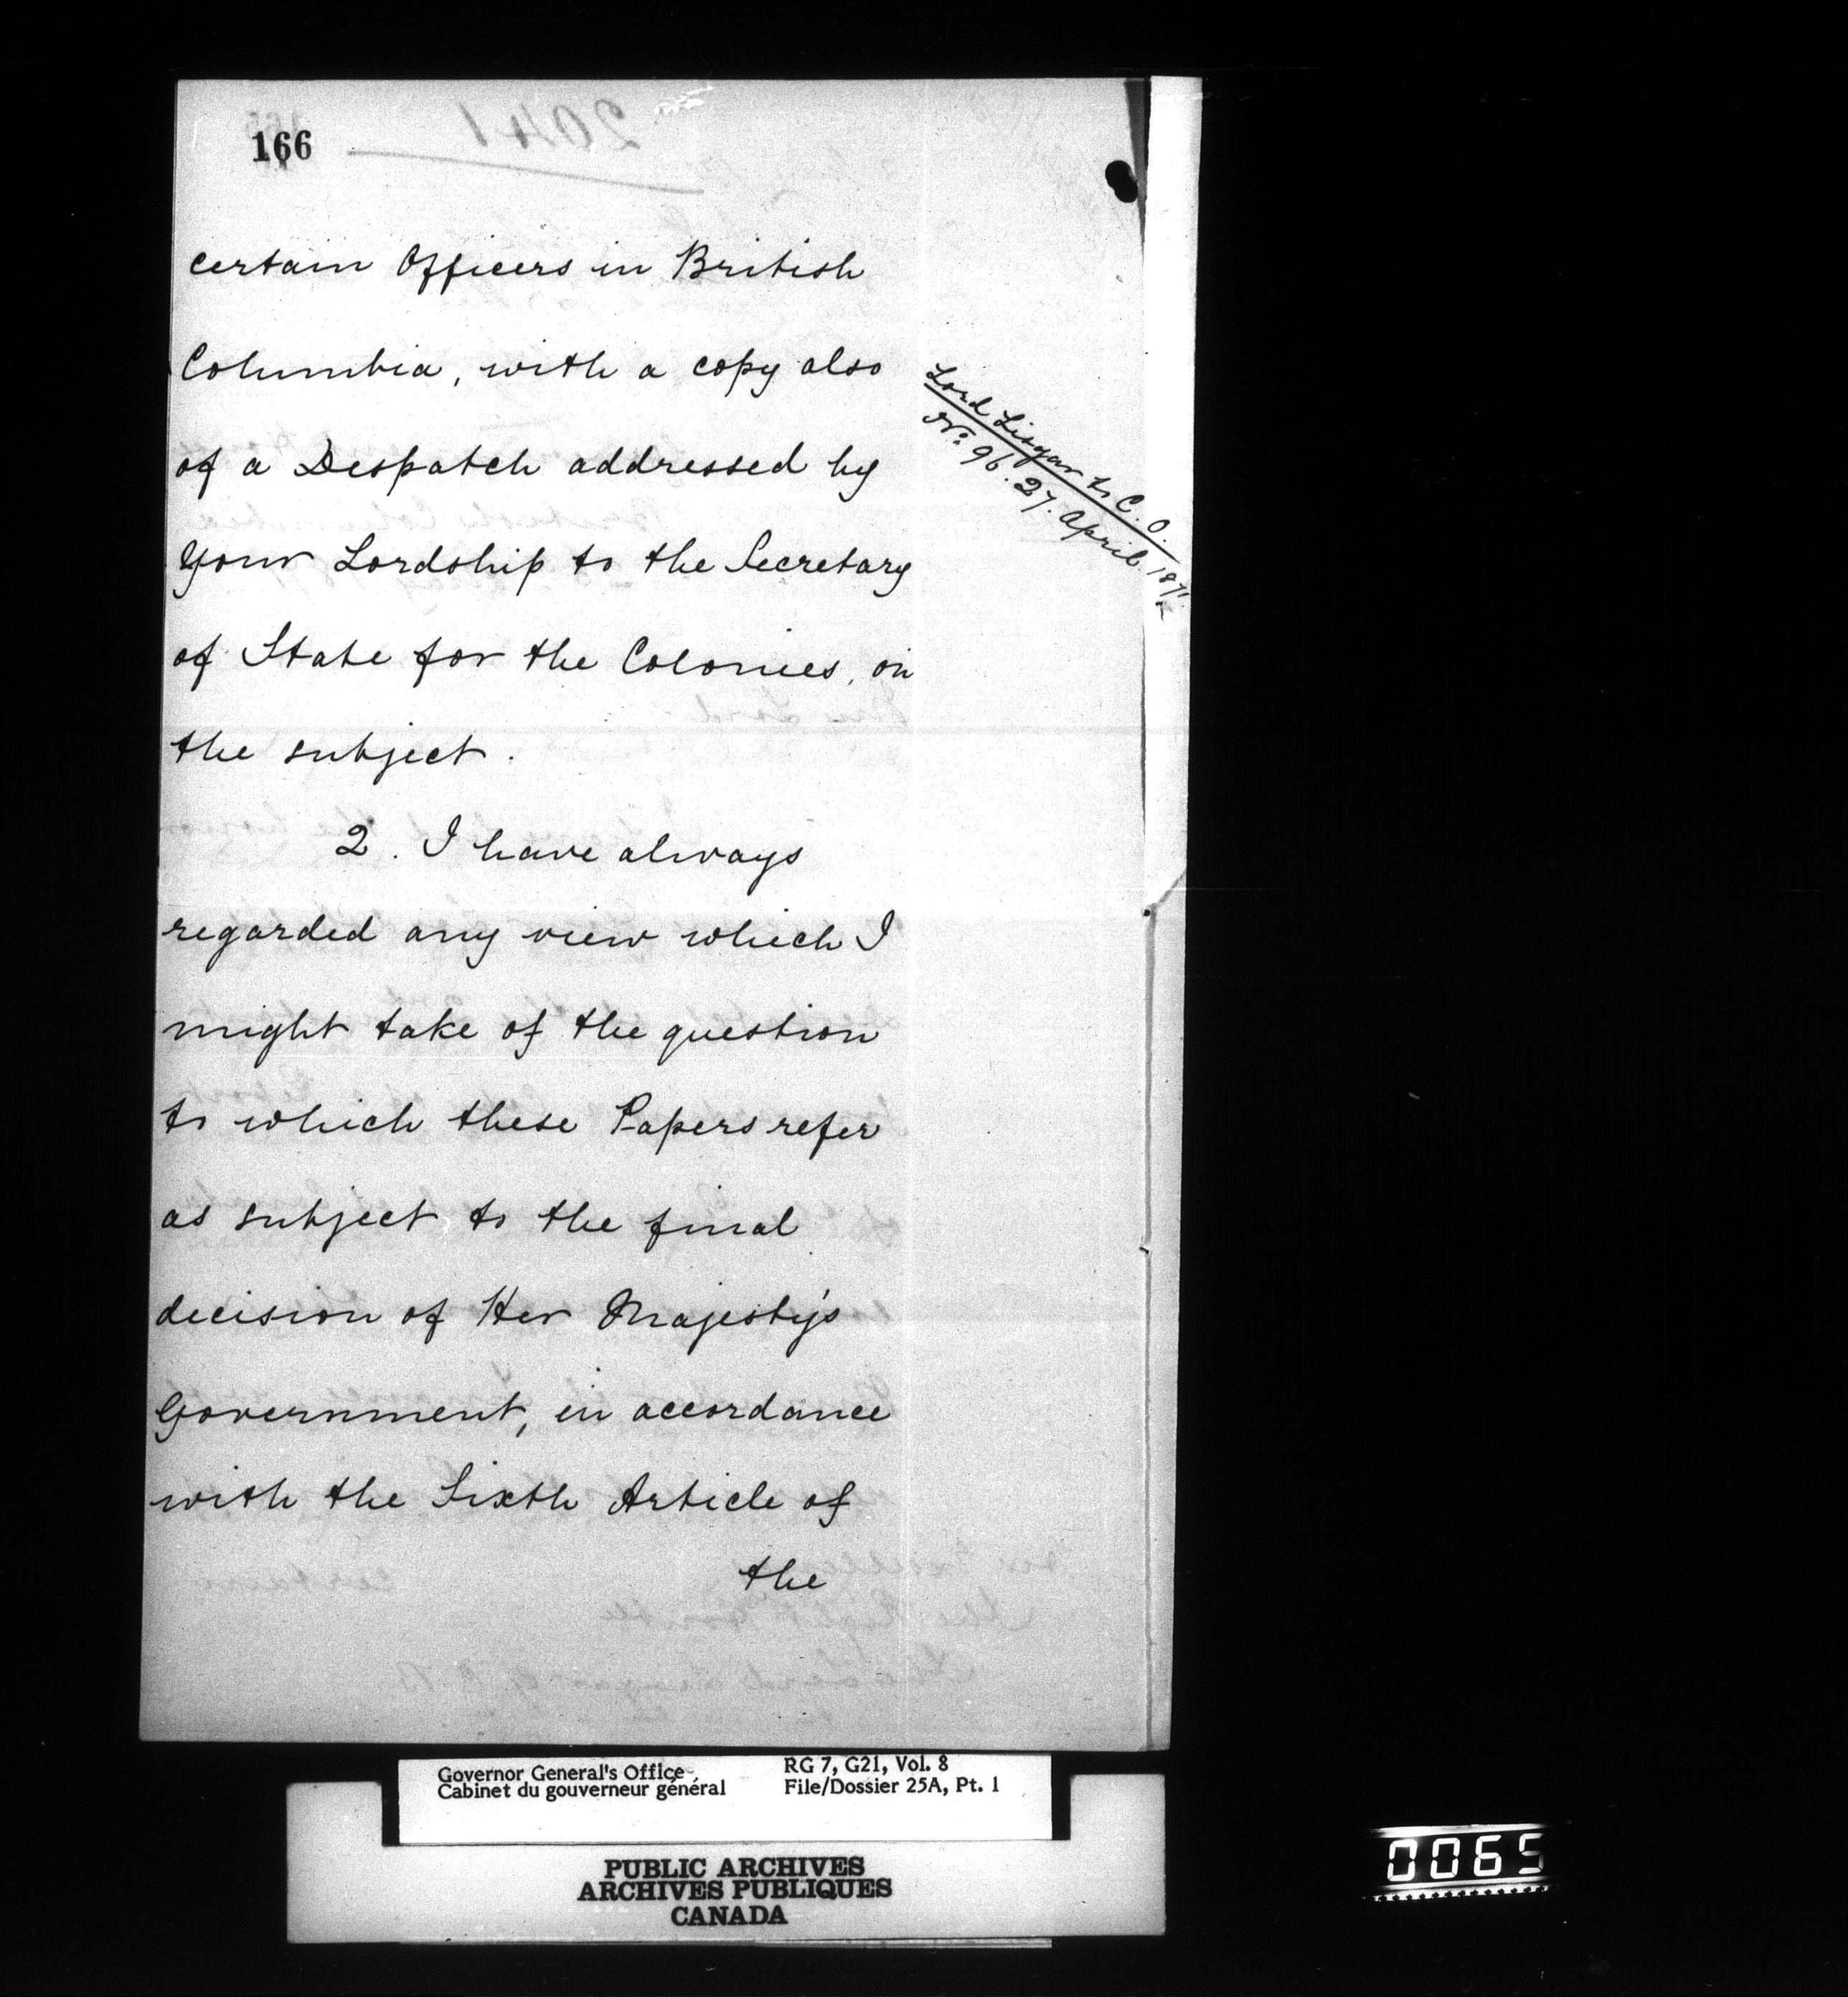 166
certain Officers in British
Columbia, with a copy also
of a Despatch addressed by
Your Lordship to the Secretary
of State for the Colonies, on
the subject.
Lord Lisgar to C. O.
No. 96. 27. April. 1871.
2. I have always
regarded any view which I
might take of the question
to which these Papers refer
as subject to the final
decision of Her Majesty's
Government, in accordance
with the Sixth Article of
the
Governor General's Office
Cabinet du gouverneur général
RG 7, G21, Vol. 8
File/Dossier 25A, Pt. 1
PUBLIC ARCHIVES
ARCHIVES PUBLIQUES
CANADA
0065